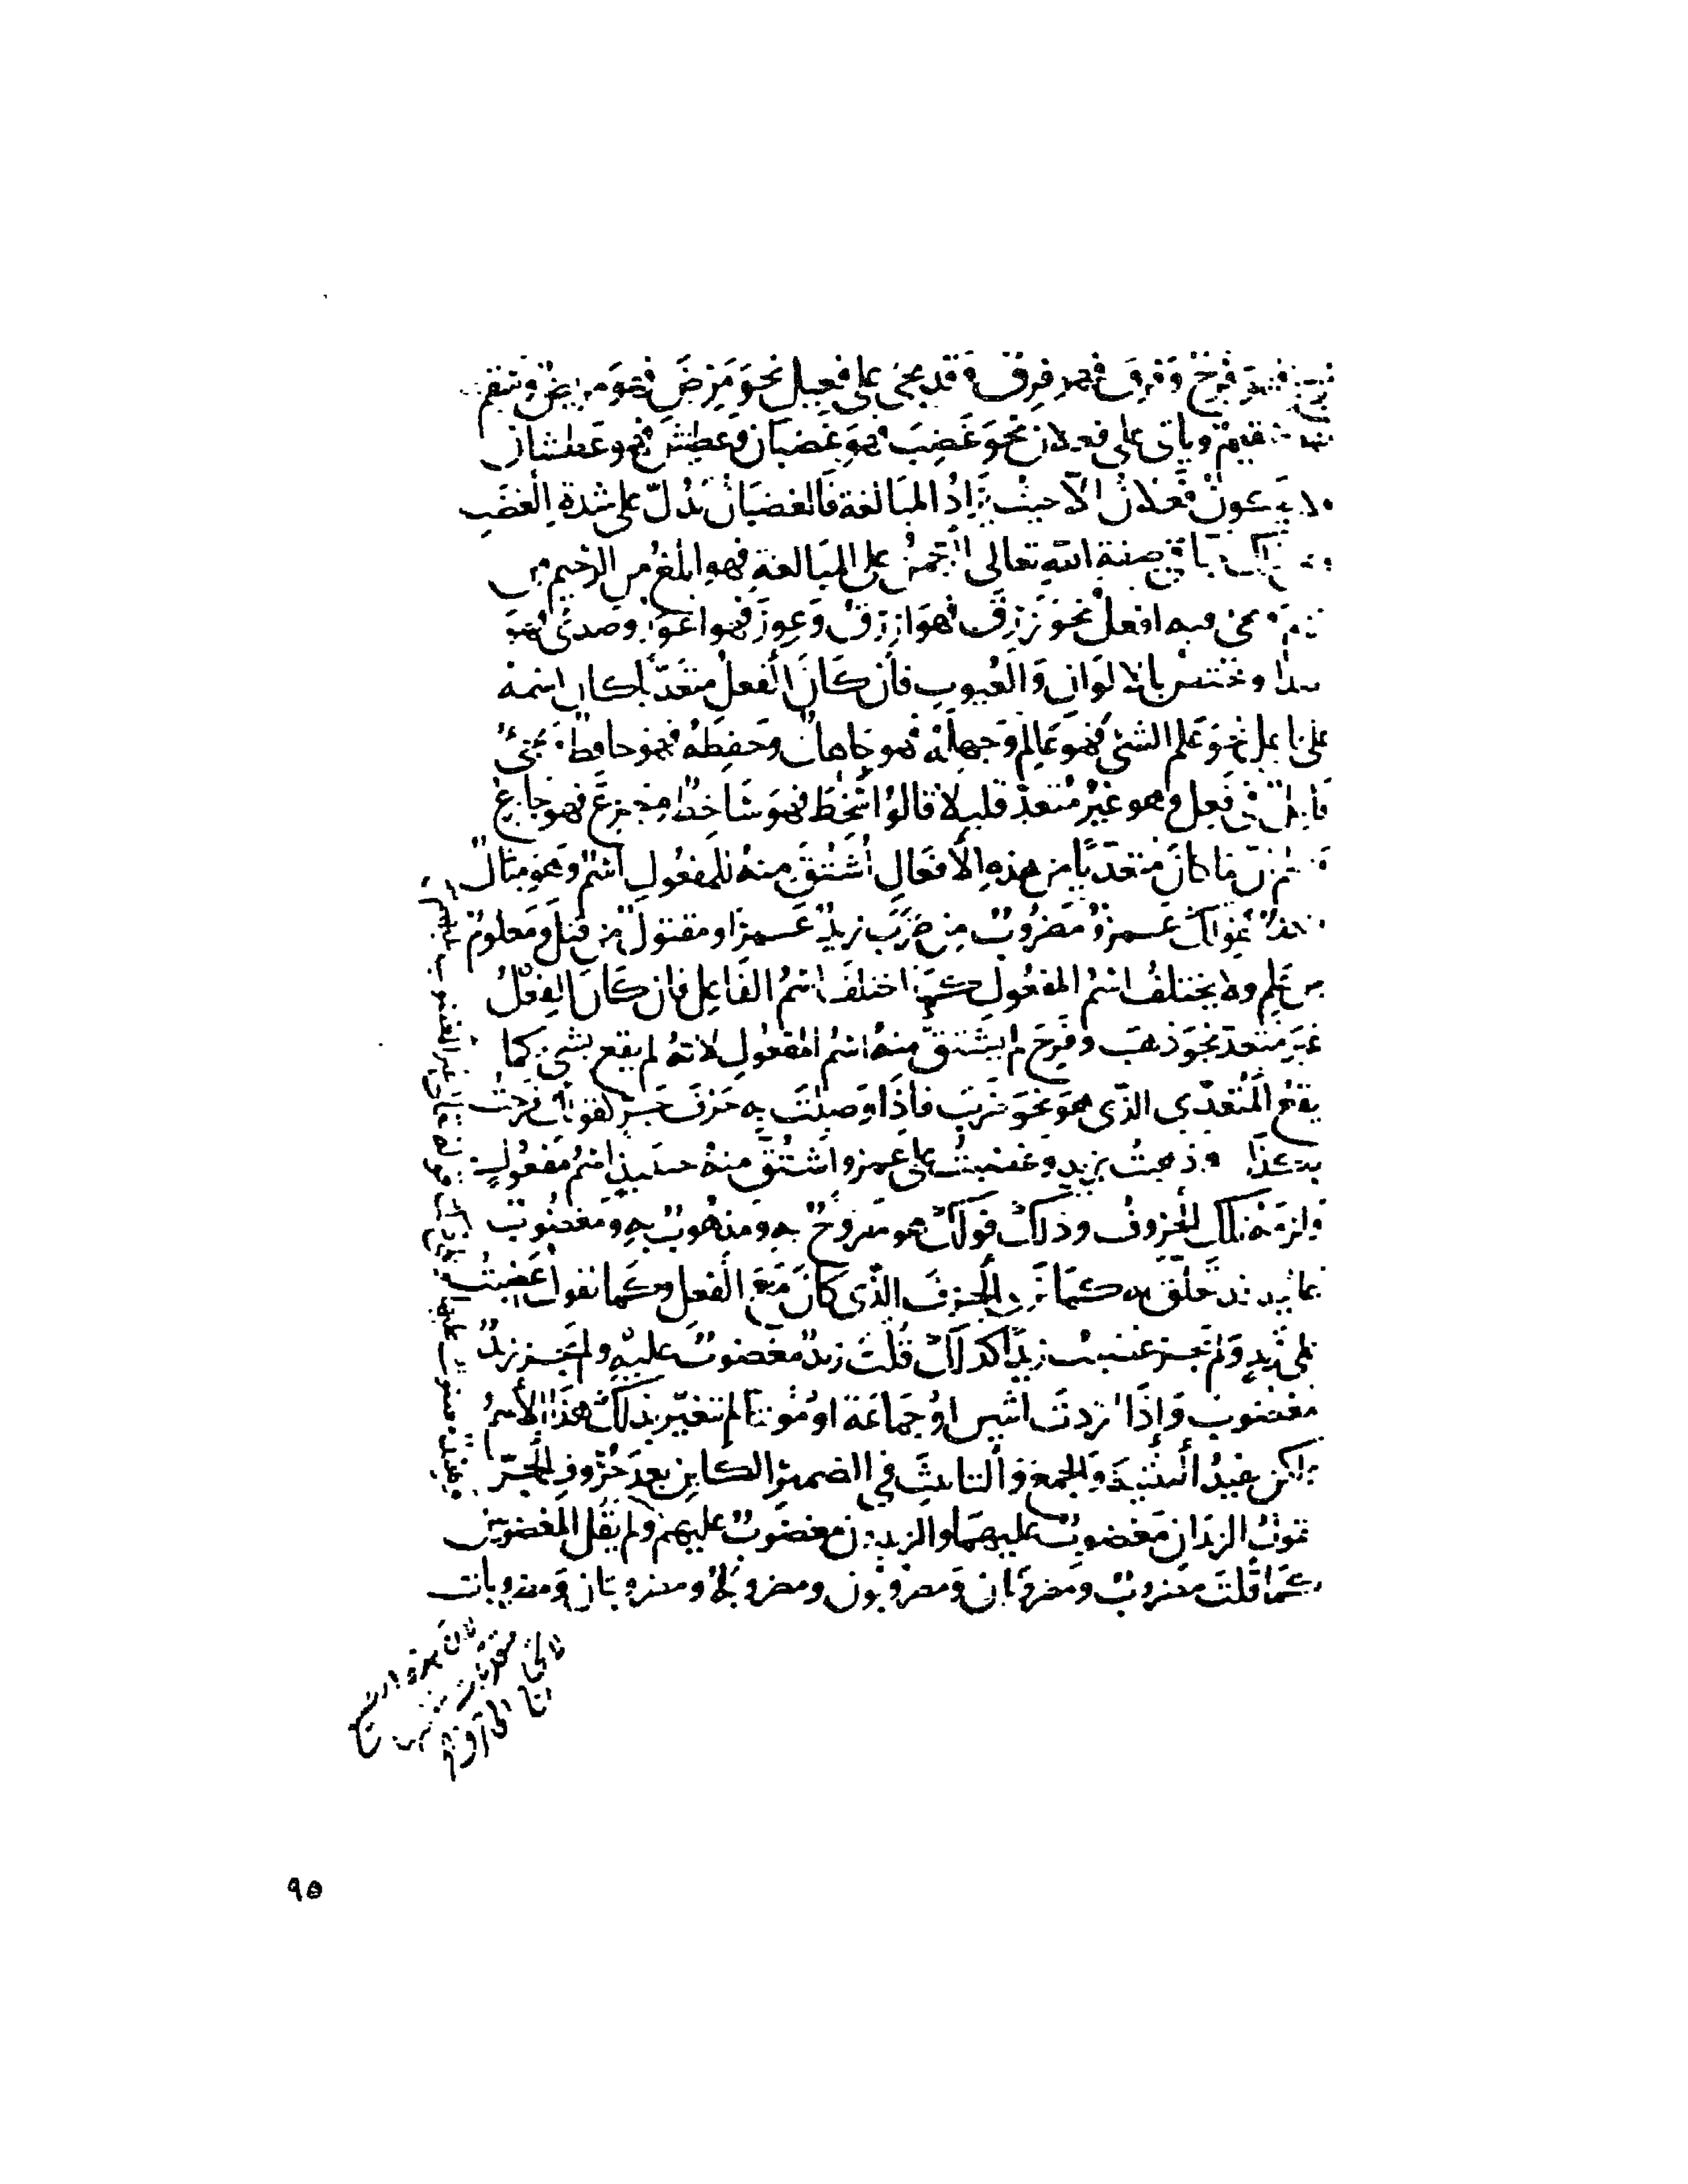 فرح فهو فرح وفرق فهو فرق وقد يجئ على فعيل نحو مرض فهو مريض وسقم
فهو سقيم وياتى على فعلان نحو غضب فهو غضبان وعطش فهو عطشان
ولا يكون فعلان الا حيث يراد المبالغة فالغضبان يدل على شدة الغضب
صفة الله تعالى الرحمن على المبالغة فهو ابلغ من الرحيم من
رحم ويجئ فيه افعل نحو زرق فهو ازرق وعور فهو اعور وصدئ فهو
اصدا وتختص بالالوان والعيوب فان كان الفعل متعديا كان اسمه
على فاعل نحو علم الشئ فهو عالم وجهله فهو جاهل وحفظه فهو حافظ ويجئ
فاعل فى فعل وهو غير متعد قليلا قالوا سخط فهو ساخط وجزع فهو جازع
ما كان متعديا من هذه الافعال اشتق منه للمفعول اسم وهو مثال
نحو قولك عمرو مضروب من ضرب زيد عمرا ومقتول من قتل ومعلوم
من علم ولا يختلف اسم المفعول كما اختلف اسم الفاعل فان كان الفعل
غير متعد نحو ذهب وفرح لم يشتق منه اسم المفعول لانه لم يقع بشئ كما
يقع المتعدى الذى هو نحو ضرب فاذا وصلت به حرف جر كقولك فرحت
بكذا وذهبت بزيد وغضبت على عمرو اشتق منه حينئذ اسم مفعول
ولزمه ذلك الحرف وذلك قولك هو مفروح به ومذهوب به ومغضوب
عليه كما الحرف الذى كان مع الفعل وكما تقول غضبت
على زيد ولم تجز غضبت زيدا كذلك قلت زيد مغضوب عليه ولم تجز زيد
مغضوب واذا اردت اثنين او جماعة او مونثا لم تتغير بذلك هذا الاسم
ولكن التثنية والجمع والتانيث فى الضمير الكاين بعد حروف الجر
تقول الزيدان مغضوب عليهما والزيدون مغضوب عليهم ولم يقل المغضوبين
كما قلت مضروب ومضروبان ومضروبون ومضروبة ومضروبتان ومضروبات
٩٥